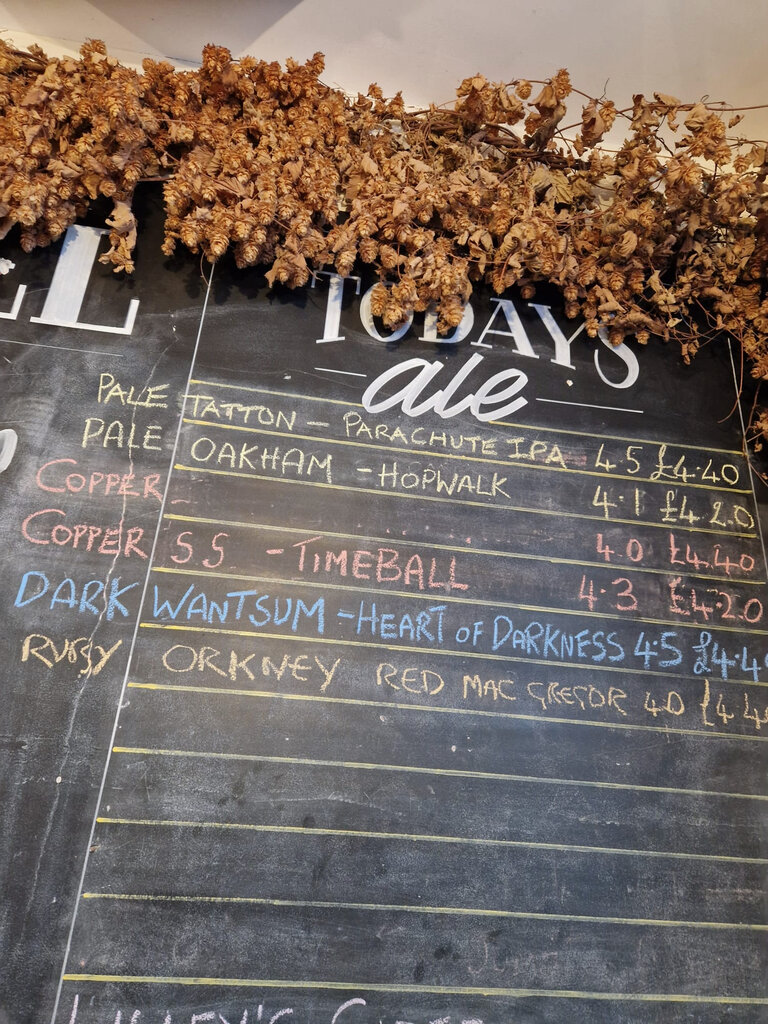 TODAYS
ale
PALE TATTON - PARACHUTE IPA 4.5 £4.40
PALE OAKHAM - HOPWALK 4.1 £4.20
COPPER 4.0 £4.40
COPPER S.S. - TIMEBALL 4.3 £4.20
DARK WANTSUM - HEART OF DARKNESS 4.5 £4.4
RUBY ORKNEY RED MAC GREGOR 4.0 £4.4